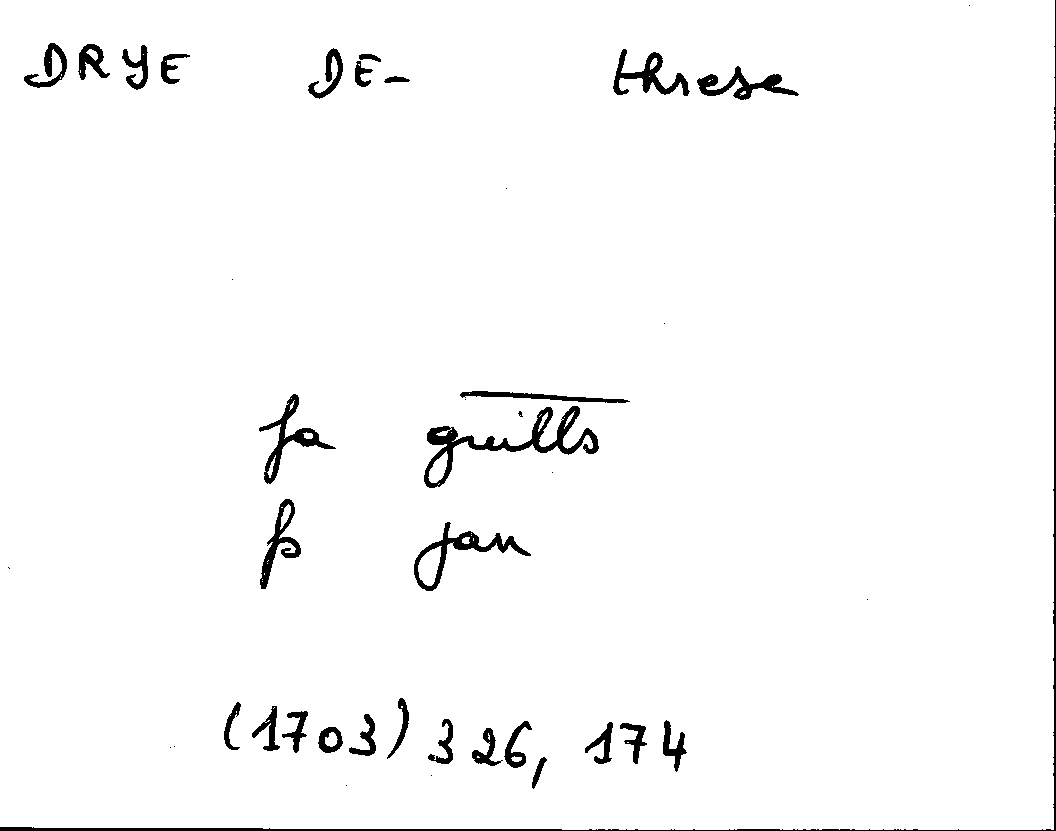 DRYE DE- threse
fa guills
fs jan
(1703) 326, 174